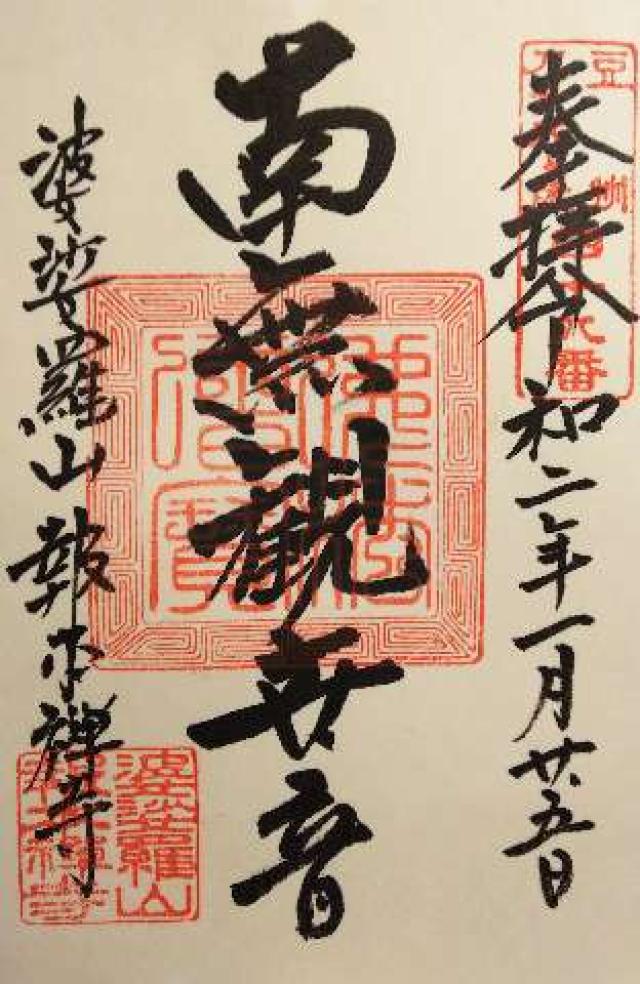 奉拝令和二年一月廿五日
南無観世音
佛法
僧寶
婆娑羅山報本禅寺
婆娑羅山